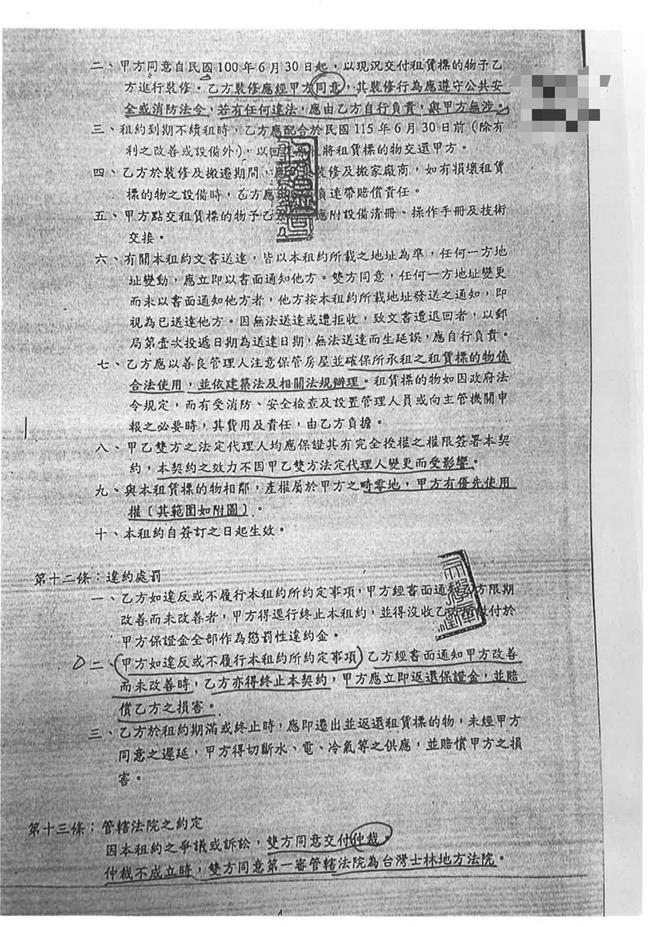 二、甲方同意自民國100年6月30日起，以現況交付租賃標的物予乙
方進行裝修。乙方裝修應經甲方同意，其裝修行為應遵守公共安
全或消防法令，若有任何違法，應由乙方自行負責，與甲方無涉。
三、租約到期不續租時，乙方應配合於民國115年6月30日前（除有
利之改善或設備外），以回 將租賃標的物交還甲方。
四、乙方於裝修及搬遷期間， 裝修及搬家廠商，如有損壞租賃
標的物之設備時，乙方應 負連帶賠償責任。
五、甲方點交租賃標的物予乙 應附設備清冊、操作手冊及技術
交接。
六、有關本租約文書送達，皆以本租約所載之地址為準，任何一方地
址變動，應立即以書面通知他方。雙方同意，任何一方地址變更
而未以書面通知他方者，他方按本租約所載地址發送之通知，即
視為已送達他方。因無法送達或遭拒收，致文書遭退回者，以郵
局第壹次投遞日期為送達日期，無法送達而生延誤，應自行負責。
七、乙方應以善良管理人注意保管房屋並確保所承租之租賃標的物係
合法使用，並依建築法及相關法規辦理。租賃標的物如因政府法
令規定，而有受消防、安全檢查及設置管理人員或向主管機關申
報之必要時，其費用及責任，由乙方負擔。
八、甲乙雙方之法定代理人均應保證其有完全授權之權限簽署本契
約，本契約之效力不因甲乙雙方法定代理人變更而受影響。
九、與本租賃標的物相鄰，產權屬於甲方之畸零地，甲方有優先使用
權（其範圍如附圖）。
十、本租約自簽訂之日起生效。
第十二條：違約處罰
一、乙方如違反或不履行本租約所約定事項，甲方經書面通 方限期
改善而未改善者，甲方得逕行終止本租約，並得沒收乙 付於
甲方保證金全部作為懲罰性違約金。
二、（甲方如違反或不履行本租約所約定事項）乙方經書面通知甲方改善
而未改善時，乙方亦得終止本契約，甲方應立即返還保證金，並賠
償乙方之損害。
三、乙方於租約期滿或終止時，應即遷出並返還租賃標的物，未經甲方
同意之遲延，甲方得切斷水、電、冷氣等之供應，並賠償甲方之損
害。
第十三條：管轄法院之約定
因本租約之爭議或訴訟，雙方同意交付仲裁。
仲裁不成立時，雙方同意第一審管轄法院為台灣士林地方法院。